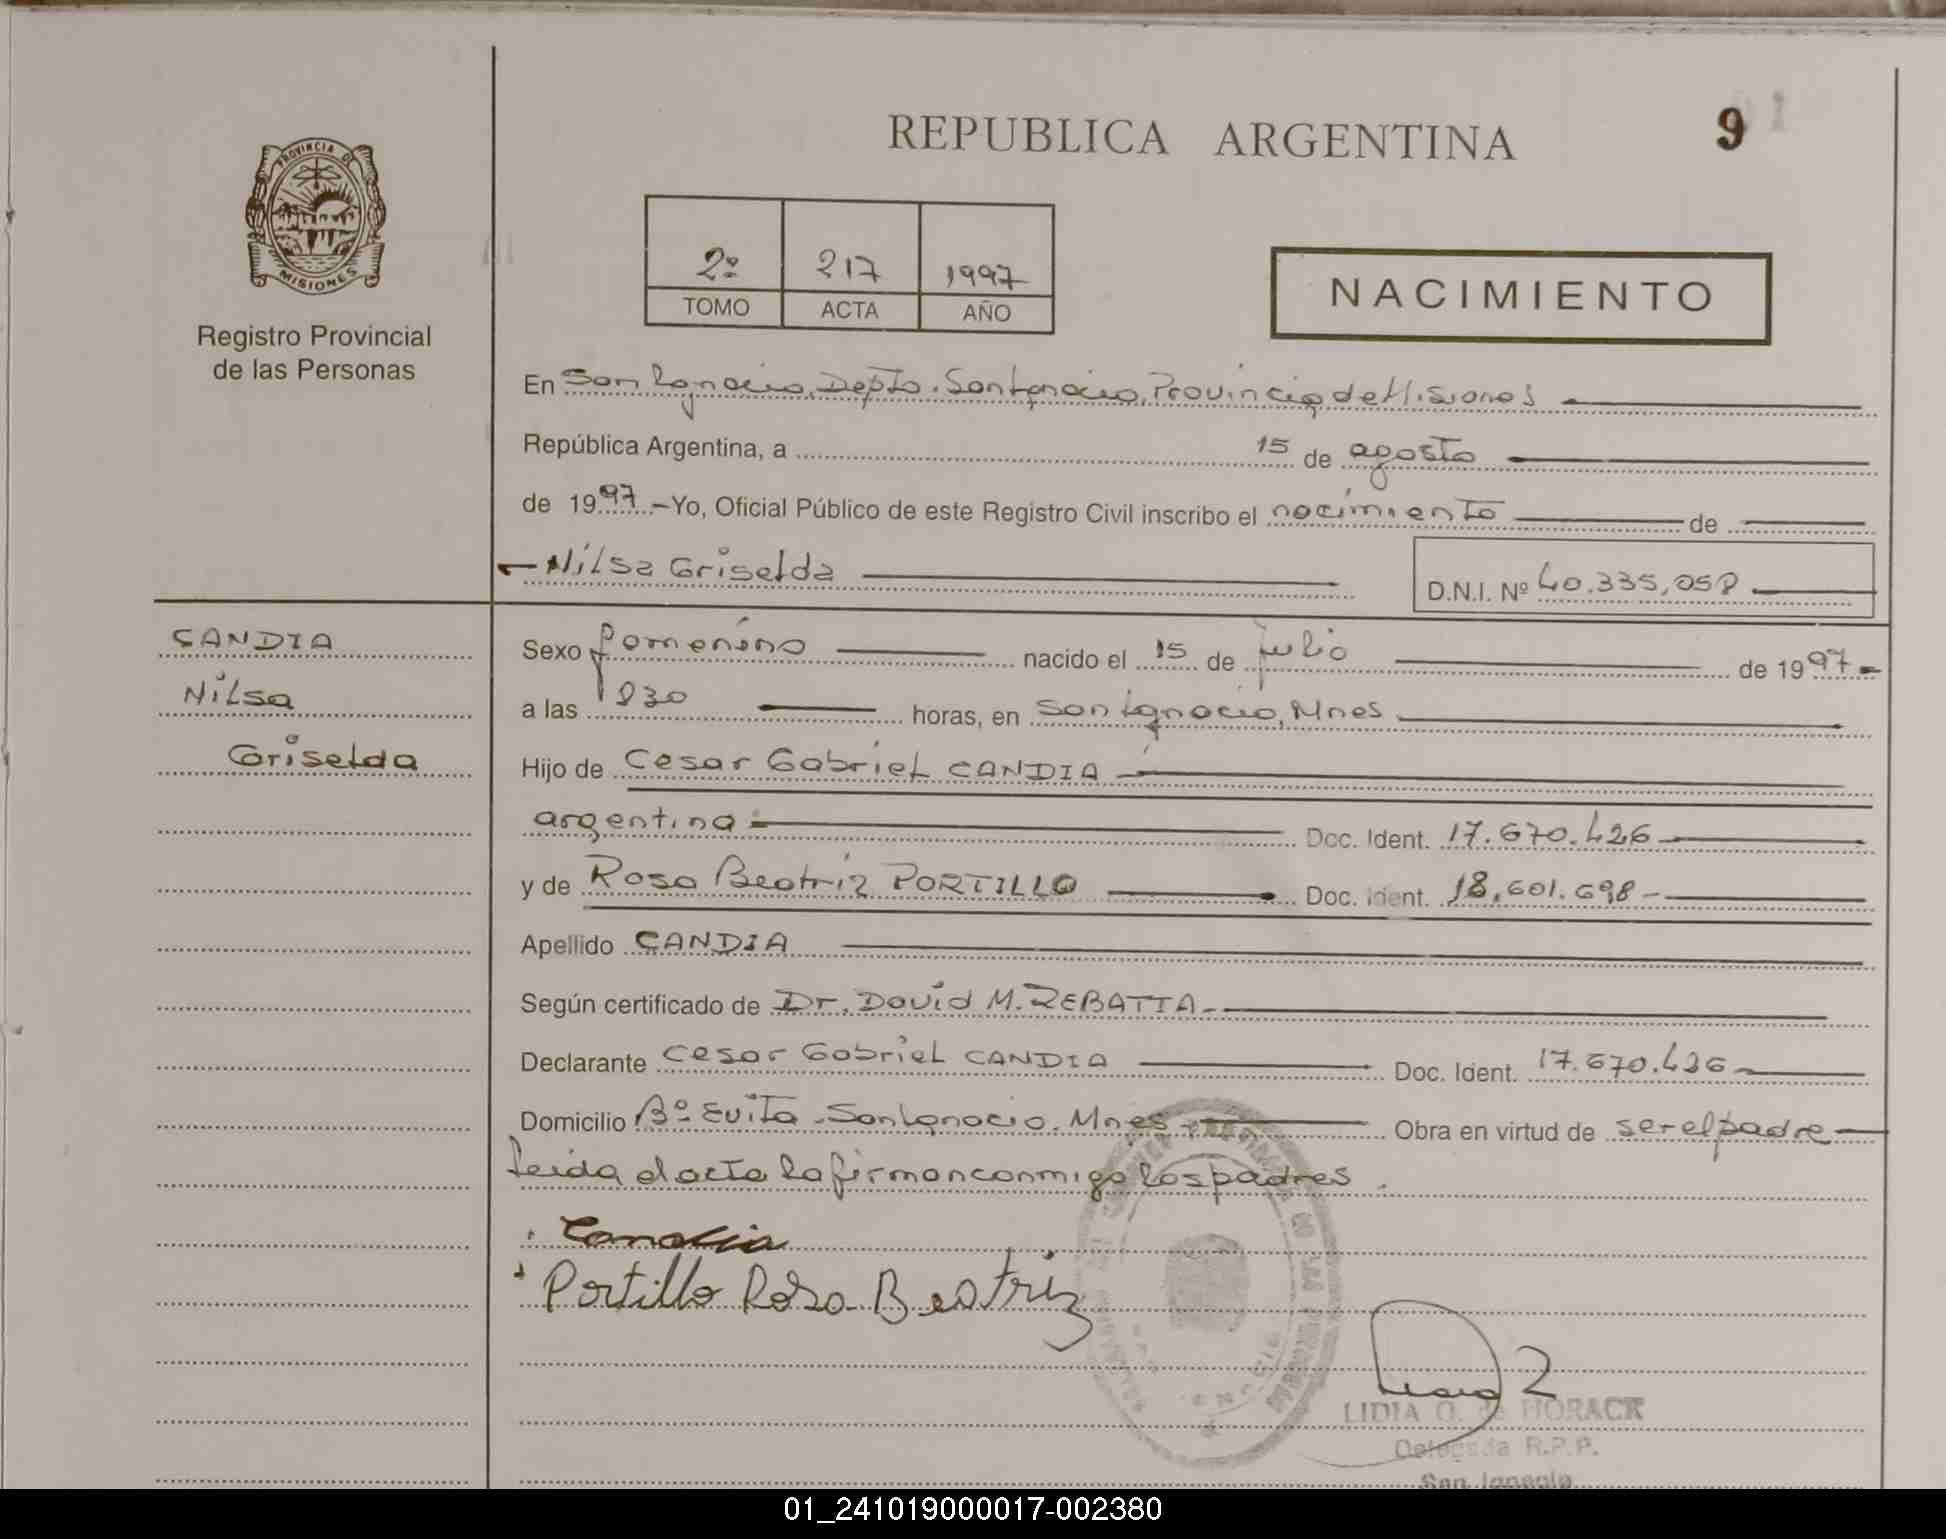 REPUBLICA ARGENTINA
9
PROVINCIA DE
MISIONES
Registro Provincial
de las Personas
2º 217 1997
TOMO ACTA AÑO
NACIMIENTO
En San Ignacio, Depto. San Ignacio, Provincia de Misiones
República Argentina, a 15 de agosto
de 1997.- Yo, Oficial Público de este Registro Civil inscribo el nacimiento de
Nilsa Griselda
D.N.I. Nº 40.335,058
CANDIA
Nilsa
Griselda
Sexo femenino nacido el 15 de julio de 1997-
a las 1930 horas, en San Ignacio, Mnes
Hijo de Cesar Gabriel CANDIA
argentina Doc. Ident. 17.670.426
y de Rosa Beatriz PORTILLO Doc. Ident. 18.601.698-
Apellido CANDIA
Según certificado de Dr. David M. ZEBATTA.
Declarante Cesar Gabriel CANDIA Doc. Ident. 17.670.426
Domicilio Bº Evita. San Ignacio. Mnes. Obra en virtud de ser el padre
Leida el acta la firman conmigo los padres.
Candia
Portillo Rosa Beatriz
LIDIA O. de HORACK
Delegada R.P.P.
San Ignacio
01_241019000017-002380